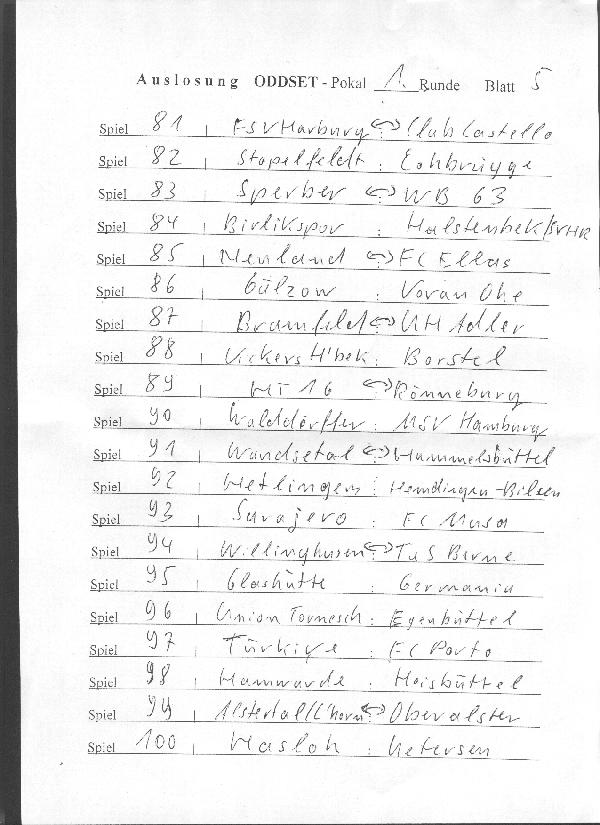 Auslosung ODDSET - Pokal 1. Runde Blatt 5
Spiel 81 | FSV Harburg <-> Club Castello
Spiel 82 | Stapelfeldt : Lohbrügge
Spiel 83 | Sperber <-> WB 63
Spiel 84 | Birlikspor : Halstenbek/SVHR
Spiel 85 | Neuland <-> FC Ellas
Spiel 86 | Gülzow : Voran Ohe
Spiel 87 | Bramfeld <-> UH Adler
Spiel 88 | Vickers H'bek : Borstel
Spiel 89 | HT 16 <-> Rönneburg
Spiel 90 | Walddörffer : MSV Hamburg
Spiel 91 | Wandsetal <-> Hummelsbüttel
Spiel 92 | Hetlingen : Hemdingen-Bilsen
Spiel 93 | Sarajevo : FC Musa
Spiel 94 | Willinghusen <-> TuS Berne
Spiel 95 | Glashütte : Germania
Spiel 96 | Union Tornesch : Egenbüttel
Spiel 97 | Türkiye : FC Porto
Spiel 98 | Hamwarde : Hoisbüttel
Spiel 99 | Alstertal/L'horn <-> Oberalster
Spiel 100 | Hasloh : Uetersen